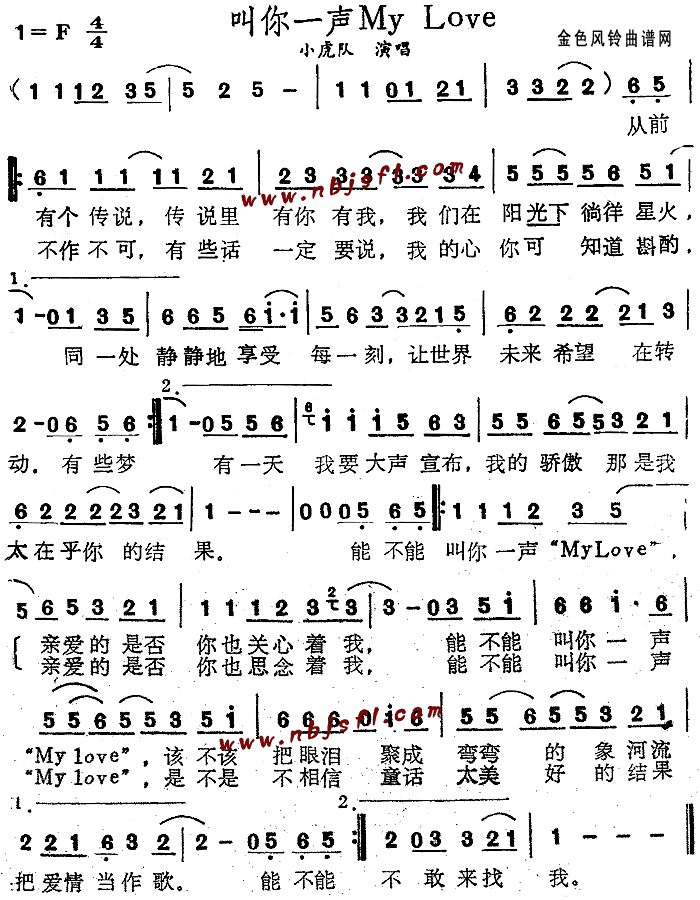 叫你一声My Love
1=F 4/4
小虎队 演唱
金色风铃曲谱网
(1 1 12 35 | 5 2 5 - | 1 1 01 21 | 3322) 65
从前
www.nbjsfl.com
61 11 11 21 | 23 33 33 34 | 55 55 65 51
有个传说，传说里 有你有我，我们在 阳光下徜徉星火，
不作不可，有些话 一定要说，我的心你可 知道斟酌，
1.
1 - 01 35 | 6 65 6i·i | 5 63 3215 | 62 22 213
同一处 静静地享受 每一刻，让世界 未来希望 在转
2.
2 - 06 56 :| 1 - 05 56 | i i i5 63 | 55 65 53 21
动．有些梦 有一天 我要大声宣布，我的骄傲 那是我
62 22 23 21 | 1 - - - | 0 0 05 65 |: 11 12 3 5
太在乎你 的结果． 能不能 叫你一声“My Love”，
5 65 53 21 | 11 12 3 3 | 3 - 03 5i | 6 6 i·6
亲爱的是否 你也关心着我， 能不能 叫你一声
亲爱的是否 你也思念着我， 能不能 叫你一声
55 65 53 5i | 66 60 i6 | 55 65 53 21
www.nbjsfl.com
“My love”，该不该 把眼泪 聚成 弯弯 的 象河流
“My love”，是不是 不相信 童话 太美 好 的结果
1.
2.
2 21 63 2 | 2 - 05 65 :| 2 03 3 21 | 1 - - -
把爱情当作歌． 能不能 不 敢来找 我．